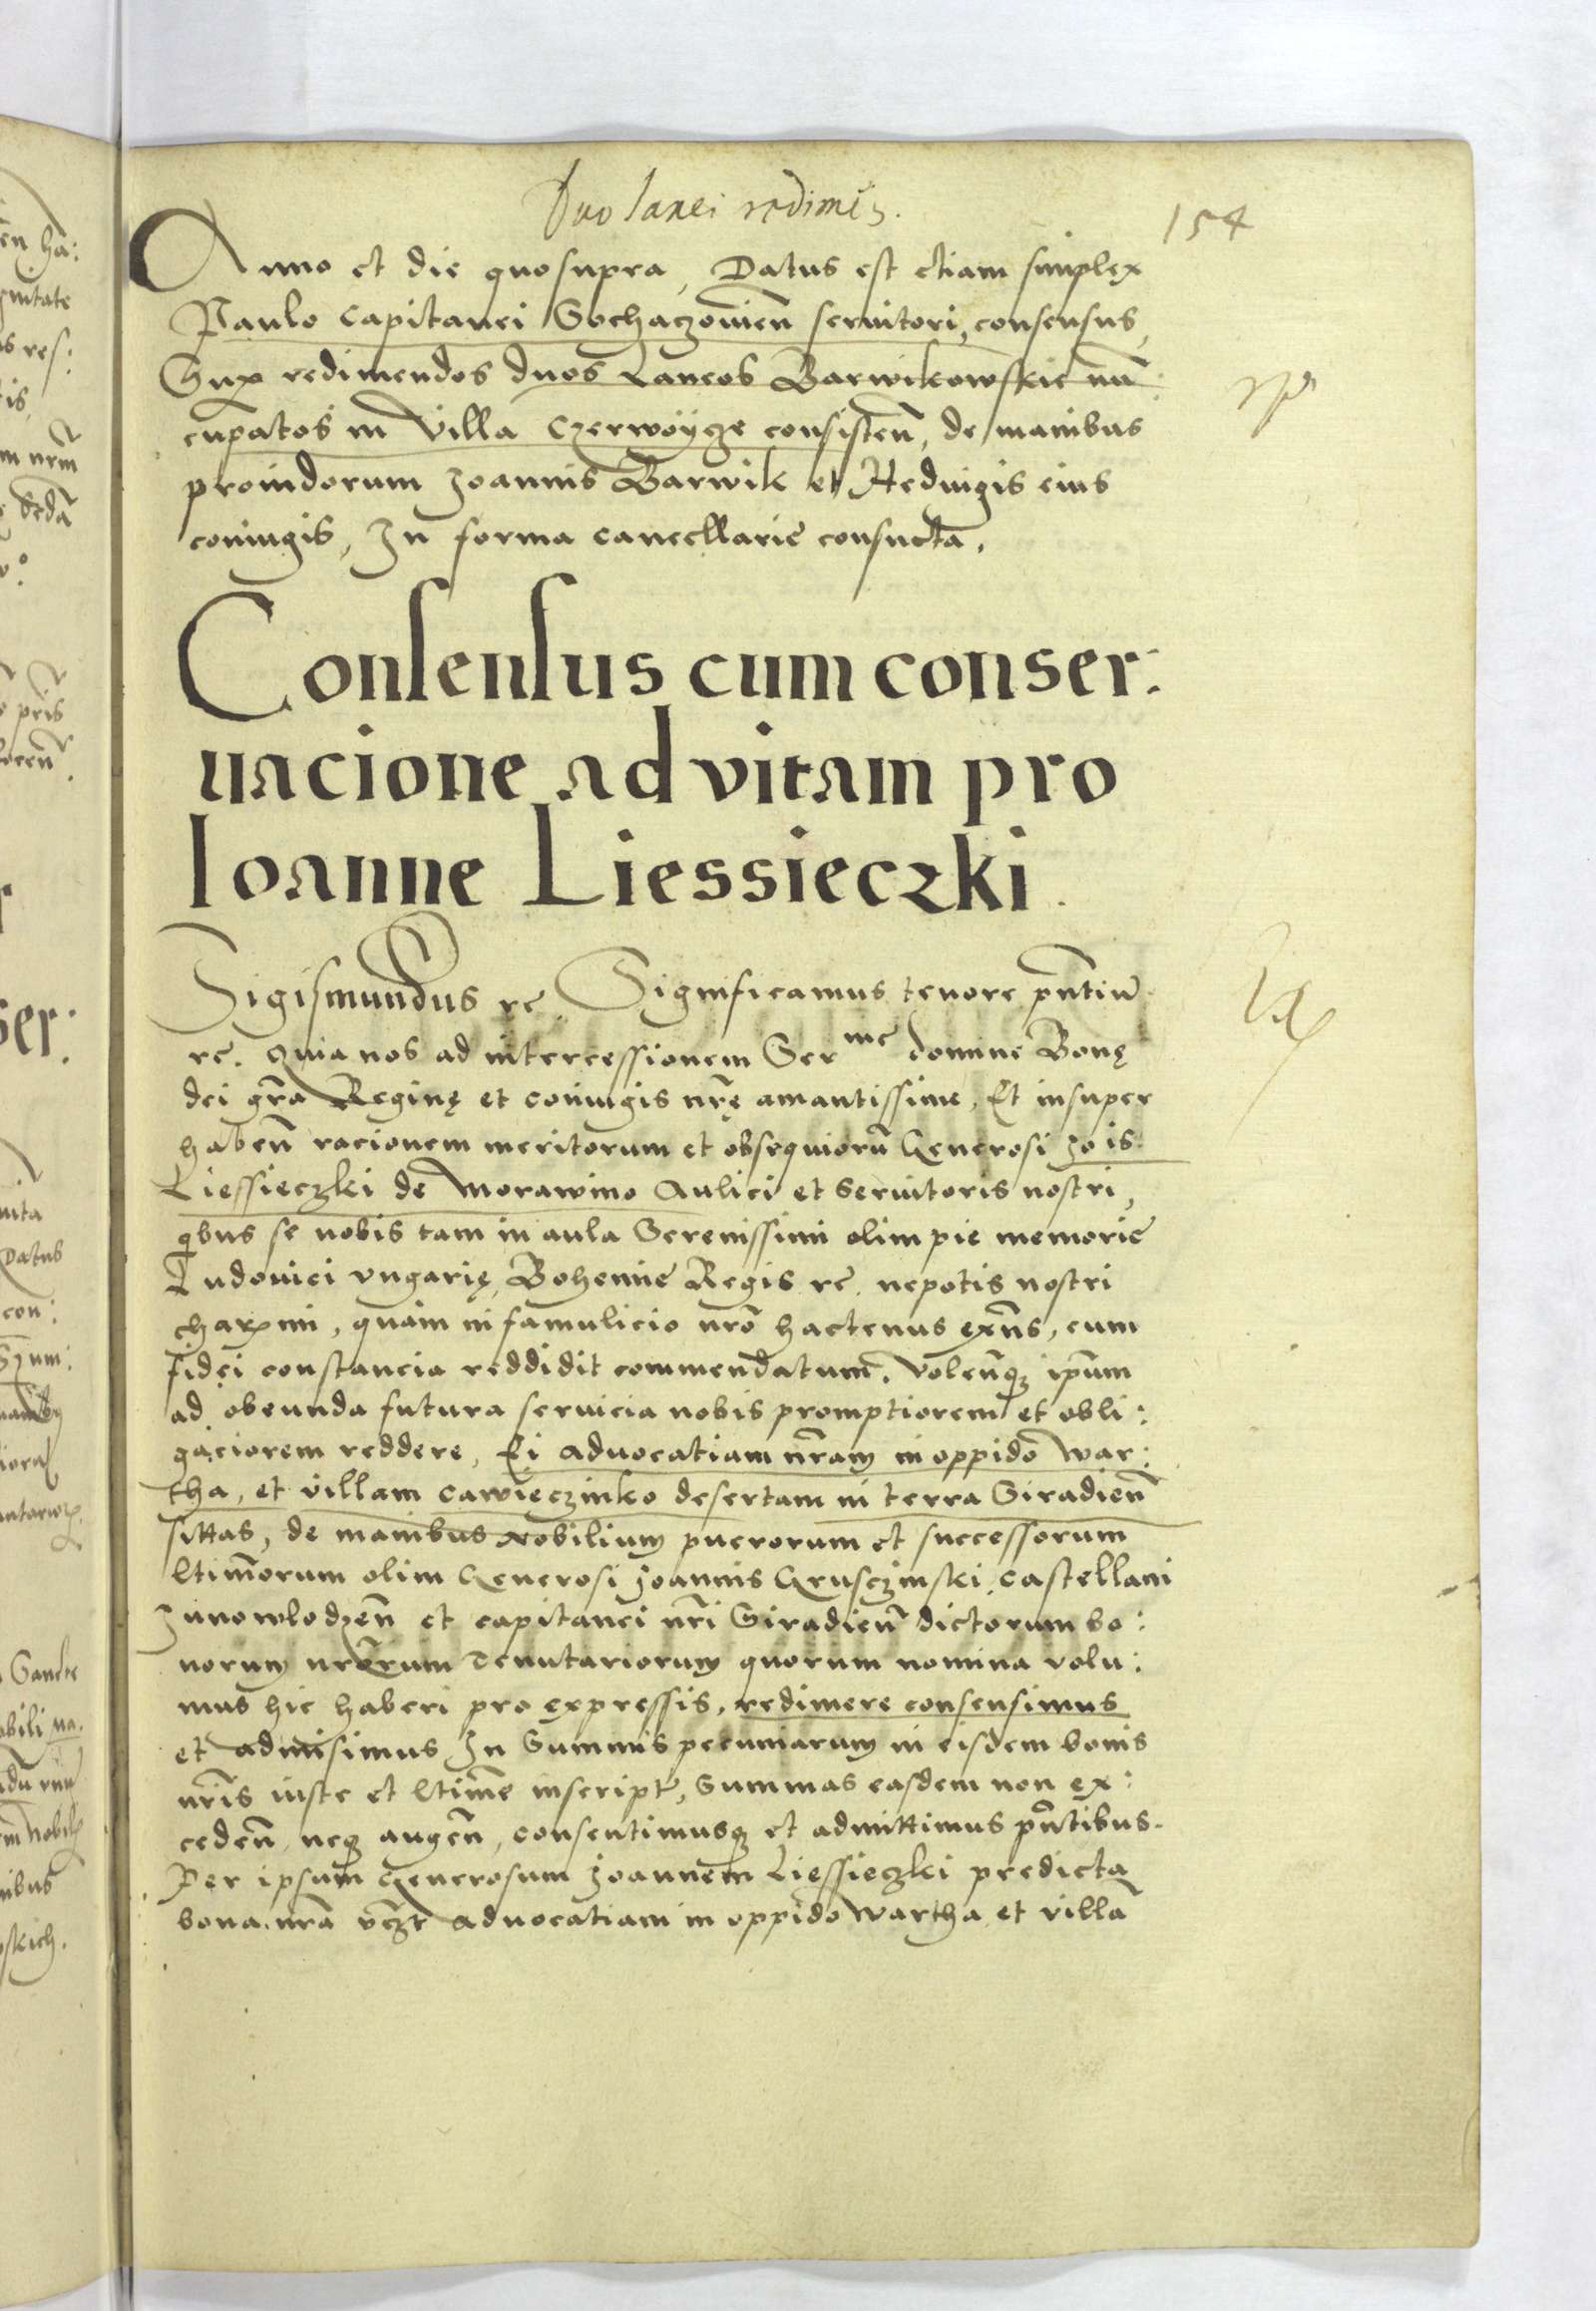 Duo lanei redimen̄.
154
Anno et die quo supra, Datus est etiam simplex
Paulo Capitanei Sochaczouien̄ seruitori, consensus,
Sup redimendos duos Laneos Barwikowskie nūn:
cupatos in villa Czerwoÿÿze consisten̄, de manibus
prouidorum Joannis Barwik et Heduigis eius
coniugis, In forma cancellarie consueta.
Consensus cum conser:
uacione ad vitam pro
Ioanne Liessieczki.
Sigismundus rc̄. Significamus tenore pn̄tiu
rc̄. Quia nos ad intercessionem Ser me domine Bonę
dei grā Reginę et coniugis nrę̄ amantissime, Et insuper
haben̄ racionem meritorum et obsequiorū Generosi Jo is
Liessieczki de Morawino Aulici et Seruitoris nostri,
qbus se nobis tam in aula Serenissimi olim pie memorie
Ludouici vngarię, Bohemie Regis rc̄. nepotis nostri
char mi, quam in famulicio nrō hactenus exn̄s, cum
fidei constancia reddidit commendatum. Volen̄q ipm̄
ad obeunda futura seruicia nobis promptiorem et obli:
gaciorem reddere, Ei aduocatiam nr̄am in oppido War:
tha, et villam Cawięczinko desertam in terra Siradien̄
sittas, de manibus Nobilium puerorum et successorum
ltimorum olim Generosi Joannis Grusczinski, Castellani
Junowlodzen̄ et capitanei nrī Siradien̄ dictorum bo:
norum nrōrum Tenutariorum quorum nomina volu:
mus hic haberi pro expressis, redimere consensimus
et admisimus In Summis pecuniarum in eisdem bonis
nrīs iuste et ltime inscript, Summas easdem non ex:
ceden̄ neq augen̄, consentimusq et admittimus pn̄tibus.
Per ipsum Generosum Joannem Liessieczki predicta
bona nrā vczt aduocatiam in oppido Wartha et villā